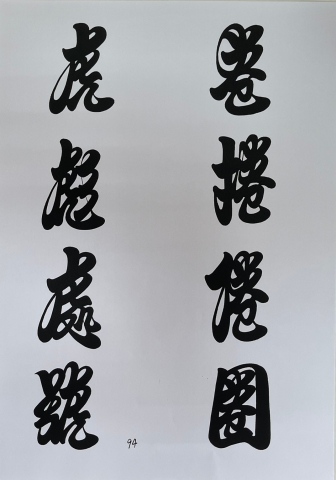 巻捲倦圏
虎彪處號
94